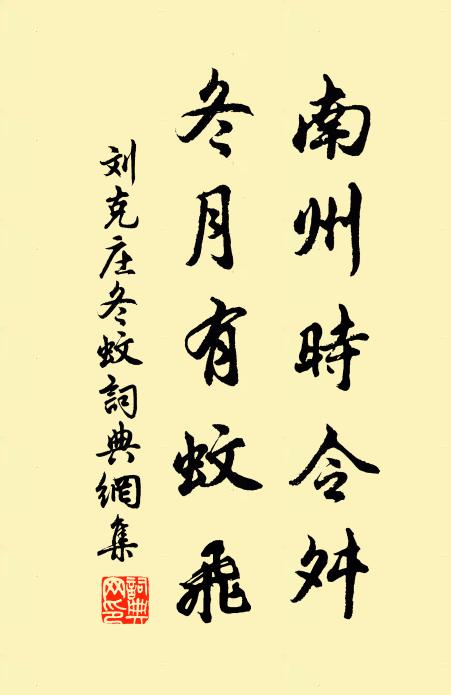 南州時令舛
冬月有蚊飛
刘克庄冬蚊詞典網集
詞典网印